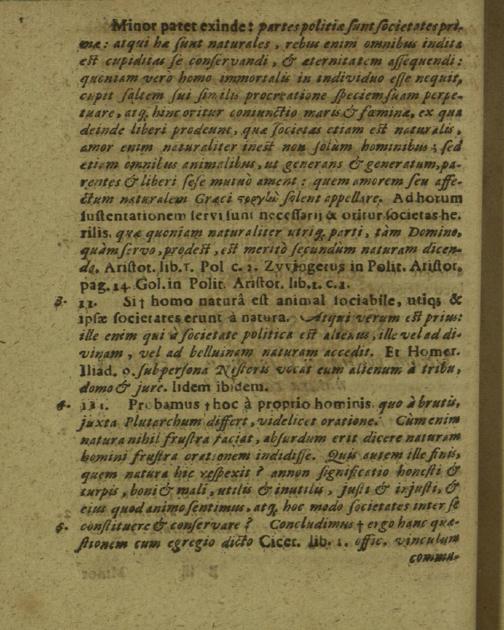 Minor patet exinde: partes politiæ sunt societates pri-
mæ: atqui hæ sunt naturales, rebus enim omnibus indita
est cupiditas se conservandi, & æternitatem assequendi:
quoniam verò homo immortalis in individuo esse nequit,
cupit saltem sui similis procreatione speciem suam perpe-
tuare, atq; hinc oritur coniunctio maris & fæminæ, ex qua
deinde liberi prodeunt, quæ societas etiam est naturalis,
amor enim naturaliter inest non solum hominibus; sed
etiam omnibus animalibus, ut generans & generatum, pa-
rentes & liberi sese mutuò ament: quem amorem seu affe-
ctum naturalem Græci solent appellare. Ad horum
sustentationem servi sunt necessarij & oritur societas he-
rilis, quæ quoniam naturaliter utriq; parti, tàm Domino,
quàm servo, prodest, est meritò secundum naturam dicen-
da, Aristot. lib. 1. Pol c. 2. Zvvingerus in Polit. Aristot.
pag. 14 Gol. in Polit. Aristot. lib. 1. c. 2.
3. II. Si † homo naturâ est animal sociabile, utiqs &
ipsæ societates erunt à natura. Atqui verum est prius:
ille enim qui à societate politica est alienus, ille vel ad di-
vinam, vel ad belluinam naturam accedit. Et Homer.
Iliad. 9. sub persona Nestoris vocat eum alienum à tribu,
domo & jure. Iidem ibidem.
4. III. Probamus † hoc à proprio hominis. quo à brutis,
juxta Plutarchum differt, videlicet oratione. Cum enim
natura nihil frustra faciat, absurdum erit dicere naturam
homini frustra orationem indidisse. Quis autem ille finis,
quem natura hic respexit? annon significatio honesti &
turpis, boni & mali, utilis & inutilis, justi & injusti, &
eius quod animo sentimus, atq; hoc modo societates inter se
5. constituere & conservare? Concludimus † ergo hanc quæ-
stionem cum egregio dicto Cicer. lib. 1. offic. vinculum
commu-